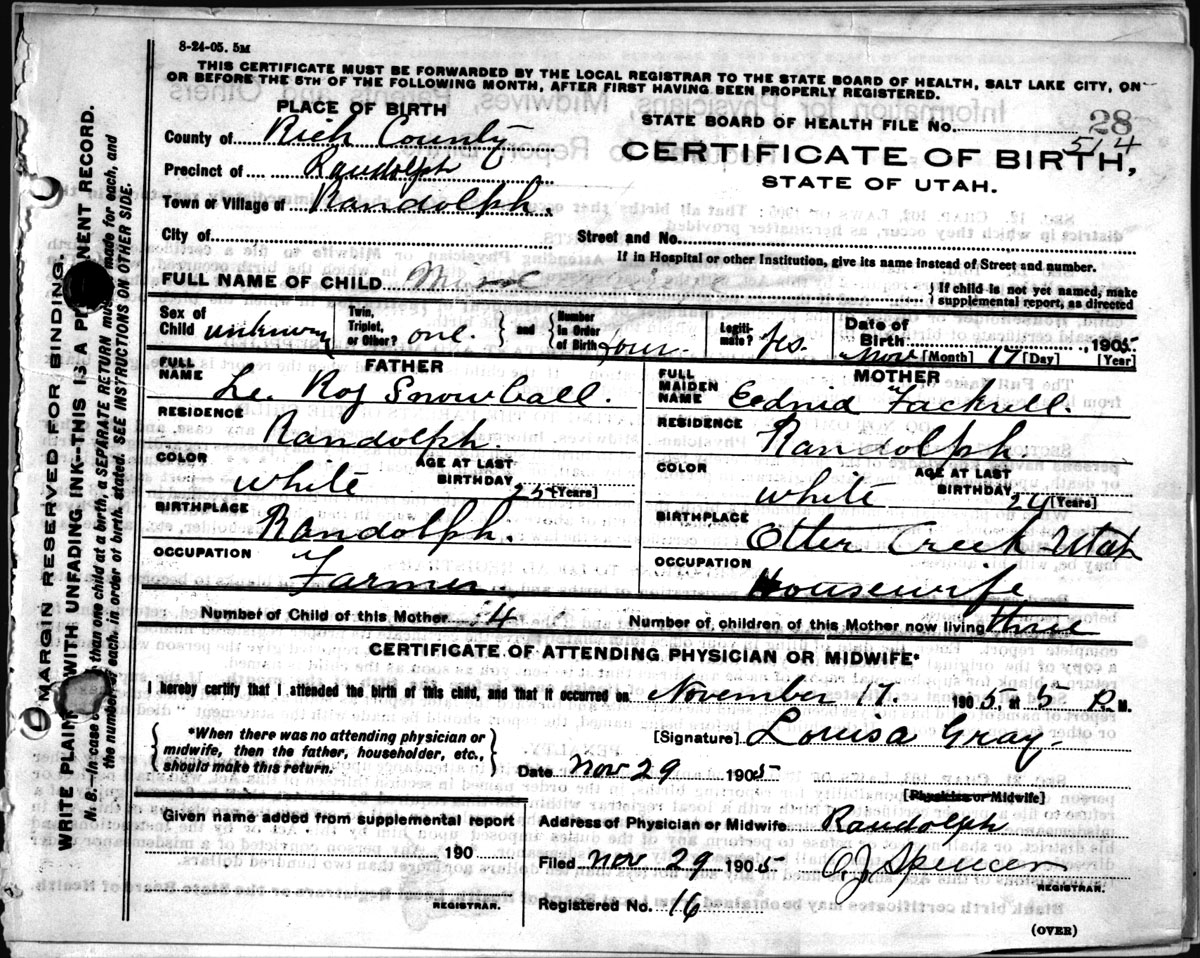 8-24-05. 5M
THIS CERTIFICATE MUST BE FORWARDED BY THE LOCAL REGISTRAR TO THE STATE BOARD OF HEALTH, SALT LAKE CITY, ON
OR BEFORE THE 5TH OF THE FOLLOWING MONTH, AFTER FIRST HAVING BEEN PROPERLY REGISTERED.
PLACE OF BIRTH
County of Rich County
Precinct of Randolph
Town or Village of Randolph.
STATE BOARD OF HEALTH FILE NO. 28
514
CERTIFICATE OF BIRTH,
STATE OF UTAH.
City of
Street and No.
If in Hospital or other Institution, give its name instead of Street and number.
FULL NAME OF CHILD
{ If child is not yet named, make
supplemental report, as directed
Sex of Child unknown
Twin, Triplet, or Other? one. } and { Number in Order of Birth four
Legitimate? Yes.
Date of Birth Nov [Month] 17 [Day] , 1905 [Year]
FATHER
FULL NAME Le. Roy Snowball.
RESIDENCE Randolph.
COLOR white
AGE AT LAST BIRTHDAY 25 [Years]
BIRTHPLACE Randolph.
OCCUPATION Farmer.
MOTHER
FULL MAIDEN NAME Eednid Fackrell.
RESIDENCE Randolph.
COLOR white
AGE AT LAST BIRTHDAY 24 [Years]
BIRTHPLACE Otter Creek Utah
OCCUPATION Housewife
Number of Child of this Mother 4
Number of children of this Mother now living three
CERTIFICATE OF ATTENDING PHYSICIAN OR MIDWIFE*
I hereby certify that I attended the birth of this child, and that it occurred on November 17. 1905, at 5 P. M.
{ *When there was no attending physician or
midwife, then the father, householder, etc.,
should make this return. }
[Signature] Louisa Gray.
Date Nov 29 1905
[Physician or Midwife]
Given name added from supplemental report
190
REGISTRAR.
Address of Physician or Midwife Randolph
Filed Nov 29 1905 O.J. Spencer
REGISTRAR.
Registered No. 16
(OVER)
MARGIN RESERVED FOR BINDING.
WRITE PLAIN WITH UNFADING INK—THIS IS A P NENT RECORD.
N. B.—In case than one child at a birth, a SEPARATE RETURN mu made for each, and
the number each, in order of birth, stated. SEE INSTRUCTIONS ON OTHER SIDE.